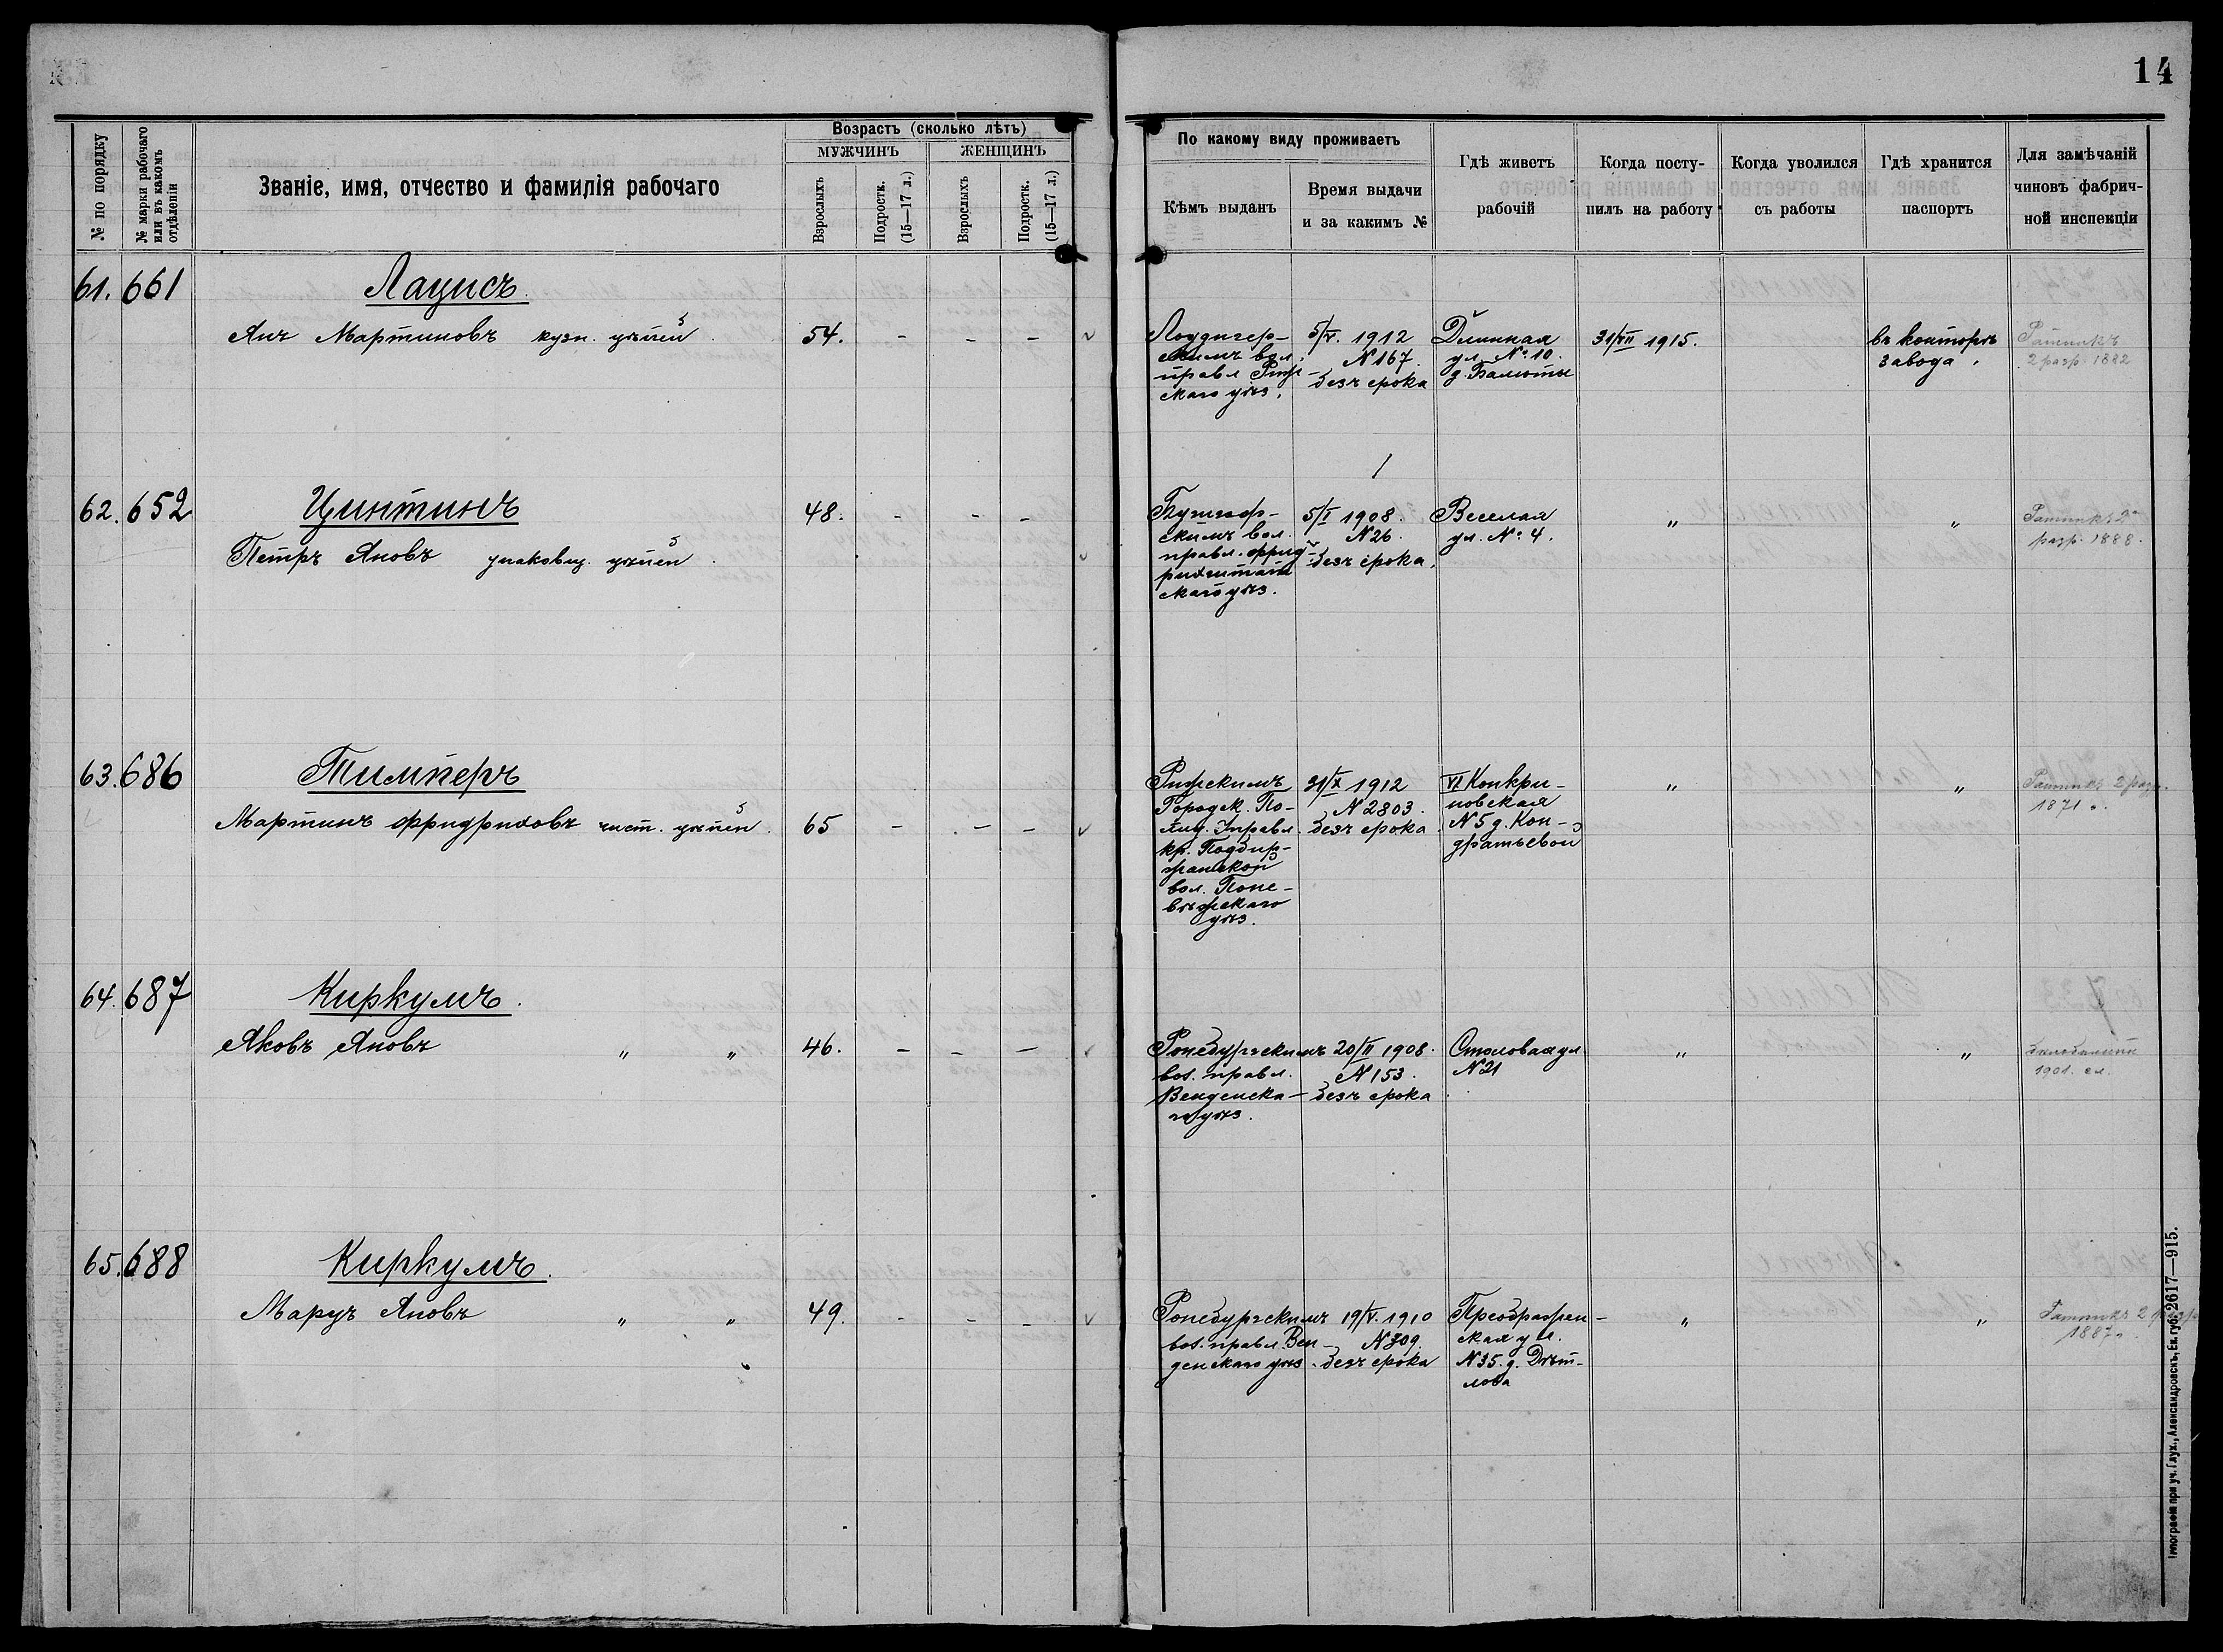 14
№ по порядку
№ марки рабочаго
или въ какомъ
отдѣленіи
Званіе, имя, отчество и фамилія рабочаго
Возрастъ (сколько лѣтъ)
МУЖЧИНЪ
ЖЕНЩИНЪ
Взрослыхъ
Подростк.
(15—17 л.)
Взрослыхъ
Подростк.
(15—17 л.)
По какому виду проживаетъ
Кѣмъ выданъ
Время выдачи
и за какимъ №
Гдѣ живетъ
рабочій
Когда посту-
пилъ на работу
Когда уволился
съ работы
Гдѣ хранится
паспортъ
Для замѣчаній
чиновъ фабрич-
ной инспекціи
61. 661
Лацисъ.
Янъ Мартиновъ кузн. цѣпей
54. - - -
скимъ вол.
правл. Риж-
скаго уѣз.
5/V. 1912
N 167.
безъ срока
Длинная
ул. № 10.
31/VII 1915.
въ конторѣ
завода.
Ратникъ
2 разр. 1882
62. 652
Цинтинъ
Петръ Яновъ упаковщ. цѣпей
48. - - -
скимъ вол.
правл. Фрид-
рихштадт
скаго уѣз.
5/I 1908.
N 26.
безъ срока.
Веселая
ул. № 4.
„
„
Ратникъ 2го
разр. 1888.
63. 686
Тимперъ
Мартинъ Фридриховъ чист. цѣпей.
65 - - -
Рижскимъ
Городск. По-
лиц. Управл.
кр. Подбир-
жанской
вол. Поне-
вѣжскаго
уѣз.
31/X 1912
N 2803.
безъ срока.
N 5 д. Кон-
дратьевой
„
„
Ратникъ 2 разр.
1871 г.
64. 687
Киркумъ.
Яковъ Яновъ „ „
46. - - -
Ронебургскимъ
вол. правл.
Венденска-
го уѣз.
20/II 1908.
N 153.
безъ срока
Столовая ул.
N 21
„
„
1901.
65. 688
Киркумъ.
Марцъ Яновъ „ „
49. - - -
Ронебургскимъ
вол. правл. Вен-
денскаго уѣз.
19/V. 1910
N 309.
безъ срока
Преображен-
ская ул.
N 35. д. Дѣт-
лова
„
„
Ратникъ 2 разр
1887 г.
Типографія при уч. Глух., Александровскъ, Ек. губ. 2617—915.